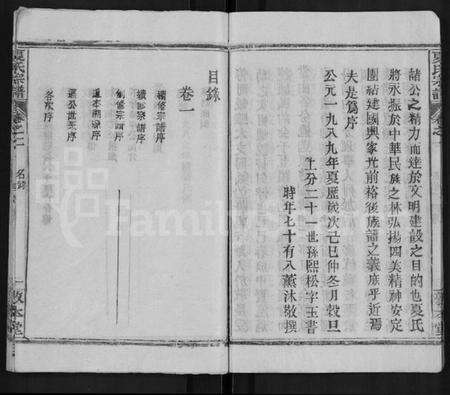 諸公之精力而達於文明建設之目的也夏氏
將永振於中華民族之林弘揚四美精神安定
團結建國興家光前裕後族譜之義庶乎近焉
夫是為序
公元一九八九年夏歷歲次己巳仲冬月穀旦
上分二十一世孫熙松字玉書
時年七十有八薰沐敬撰
夏氏宗譜
目錄
卷一
續修宗譜序
續修宗譜序
創修宗譜序
各次序
敦本堂
FamilySearch